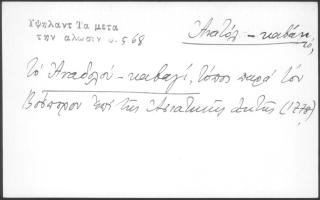 Υψηλαντ Τα μετα
την αλωσιν σ.568
Ἀνατόλ-καβάκ
τὸ Ἀναδολοῦ-καβαγί, τόπος παρὰ τὸν
Βόσπορον ἐπὶ τῆς Ἀσιατικῆς ἀκτῆς (1778)